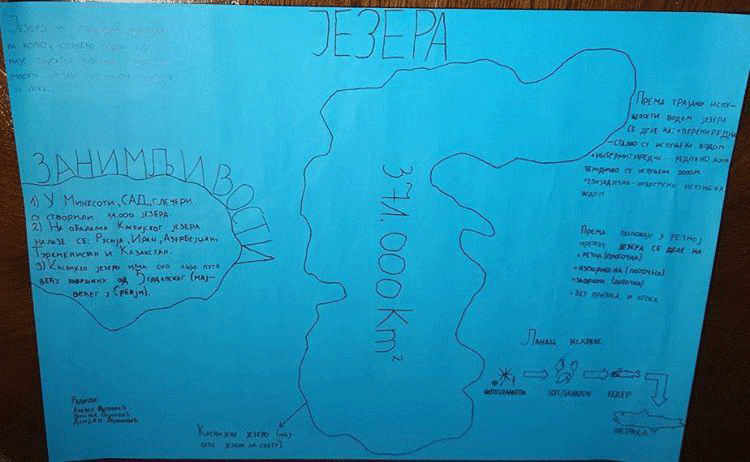 ЈЕЗЕРА
ЈЕЗЕРО ЈЕ
НА КОПНУ, ИСПУЊЕНО ВОДОМ КОЈЕ
НИЈЕ ДИРЕКТНО
МОРЕМ. ЈЕЗЕРО
И ЛОКВЕ.
ЗАНИМЉИВОСТИ
1) У МИНЕСОТИ, САД, ГЛЕЧЕРИ
СУ СТВОРИЛИ 11.000 ЈЕЗЕРА.
2) НА ОБАЛАМА КАСПИЈСКОГ ЈЕЗЕРА
НАЛАЗЕ СЕ: РУСИЈА, ИРАН, АЗЕРБЕЈЏАН,
ТУРКМЕНИСТАН И КАЗАХСТАН.
3) КАСПИЈСКО ЈЕЗЕРО ИМА ОКО ПУТА
ВЕЋУ ПОВРШИНУ ОД ЂЕРДАПСКОГ (НАЈ-
ВЕЋЕГ У СРБИЈИ).
371.000 Km²
ПРЕМА ТРАЈАЊУ ИСПУ-
ЊЕНОСТИ ВОДОМ ЈЕЗЕРА
СЕ ДЕЛЕ НА:
СТАЛНО СУ ИСПУЊЕНА ВОДОМ
- РЕДОВНО ИЛИ
ПЕРИОДИЧНО СУ ИСПУЊЕНА ВОДОМ
ЕПИЗОДИЧНА - ПОВРЕМЕНО ИСПУЊЕНА
ВОДОМ
ПРЕМА ПОЛОЖАЈУ У РЕЧНОЈ
МРЕЖИ ЈЕЗЕРА СЕ ДЕЛЕ НА
• РЕЧНА (ПРОТОЧНА)
• ИЗВОРИШНА (ПОТОЧНА)
• (ДОТОЧНА)
• БЕЗ ПРИТОКА И ОТОКА
ЛАНАЦ ИСХРАНЕ
ФИТОПЛАНКТОН ЗОПЛАНКТОН КЕДЕР
ПАСТРМКА
РАДИЛИ:
КАСПИЈСКО ЈЕЗЕРО (НАЈ-
ВЕЋЕ ЈЕЗЕРО НА СВЕТУ)